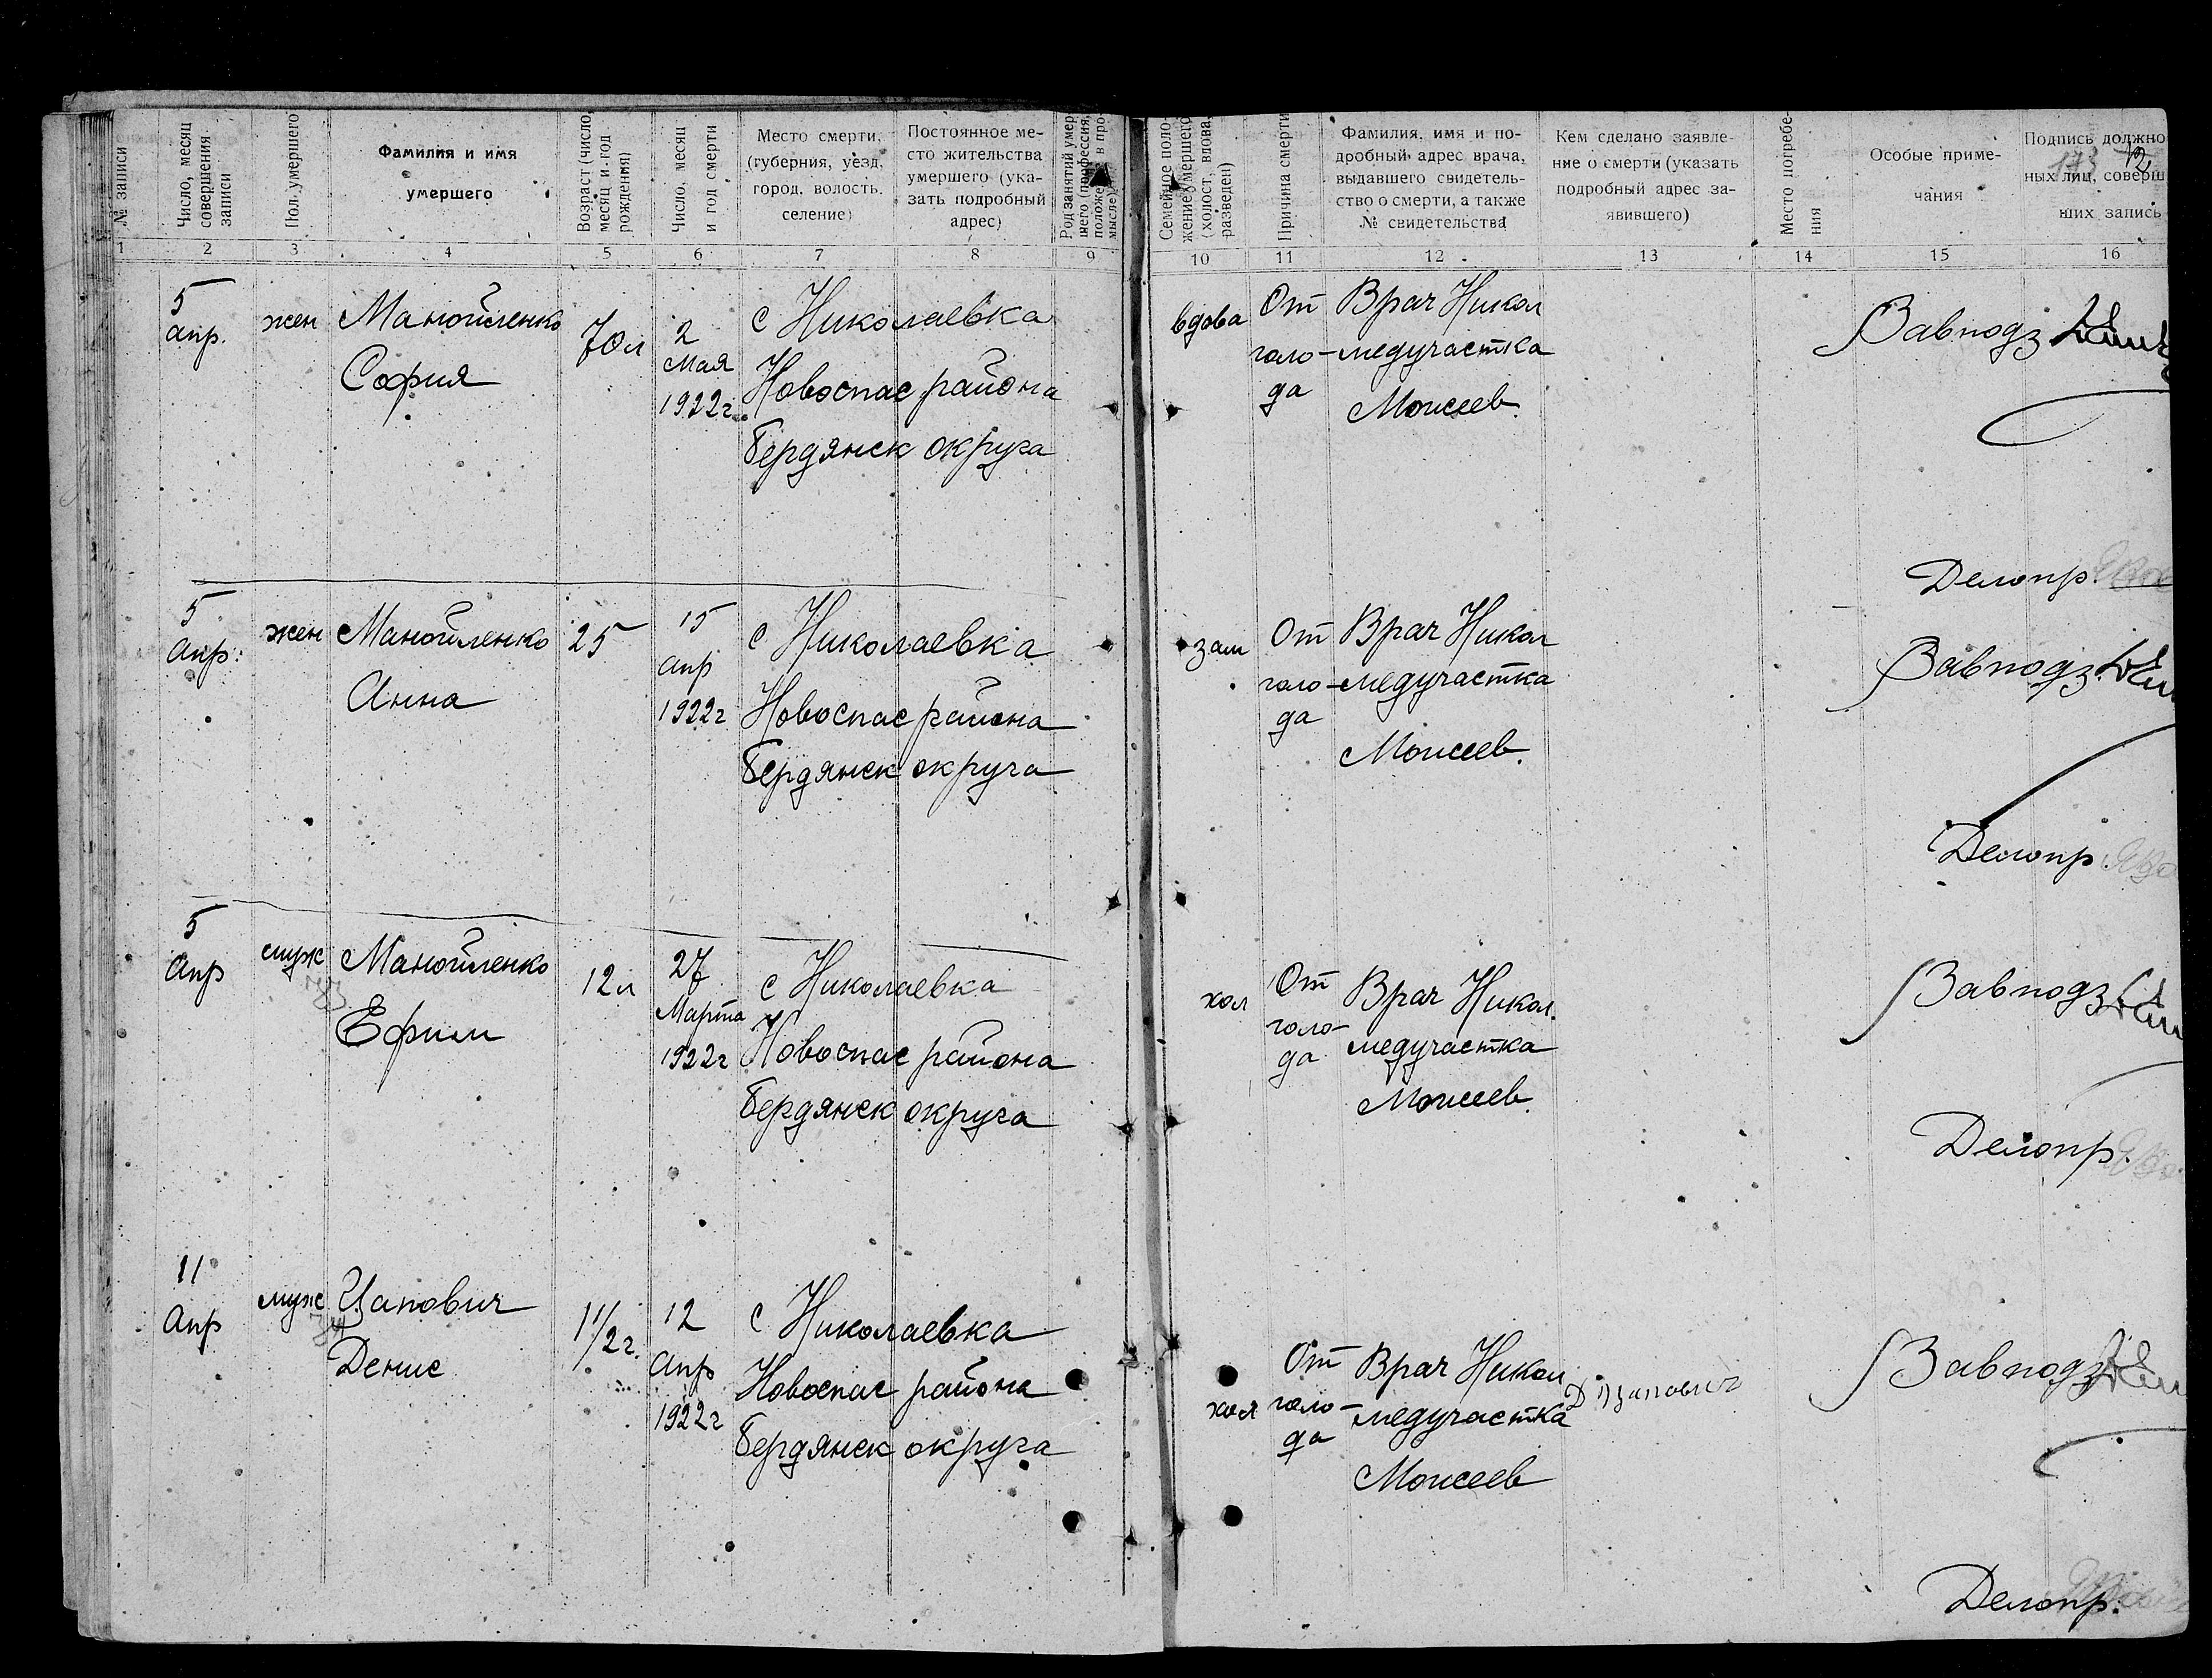 № записи
Число, месяц
совершения
записи
Пол умершего
Фамилия и имя
умершего
Возраст (число,
месяц и год
рождения)
Число, месяц
и год смерти
Место смерти,
(губерния, уезд,
город, волость,
селение)
Постоянное ме-
сто жительства
умершего (ука-
зать подробный
адрес)
Род занятий умер-
шего (профессия,
Семейное поло-
жение умершего
(холост, вдова,
разведен)
Причина смерти
Фамилия, имя и по-
дробный адрес врача,
выдавшего свидетель-
ство о смерти, а также
№ свидетельства
Кем сделано заявле-
ние о смерти (указать
подробный адрес за-
явившего)
Место погребе-
ния
Особые приме-
чания
Подпись должно
173
ных лиц, соверш
ших запись
1 2 3 4 5 6 7 8 9 10 11 12 13 14 15 16
5
апр.
жен
Манойленко
София
70 л
2
мая
1922г.
с Николаевка
Новоспас района
Бердянск округа
вдова
От
голо-
да
Врач Никол
медучастка
Моисеев.
Завподз
Делопр.
5
апр.
жен
Манойленко
Анна
25
15
апр
1922г
с Николаевка
Новоспас района
Бердянск округа
зам
От
голо-
да
Врач Никол
медучастка
Моисеев.
Завподз.
Делопр.
5
апр
муж
Манойленко
Ефим
12 л
27
Марта
1922г
с Николаевка
Новоспас района
Бердянск округа
хол
От
голо-
да
Врач Никол.
медучастка
Моисеев.
Завподз
Делопр.
11
апр
муж
Цапович
Денис
1 1/2 г.
12
апр
1922г
с Николаевка
Новоспас района
Бердянск округа
хол
От
голо-
да
Врач Никол
медучастка
Моисеев
Завподз
Делопр.